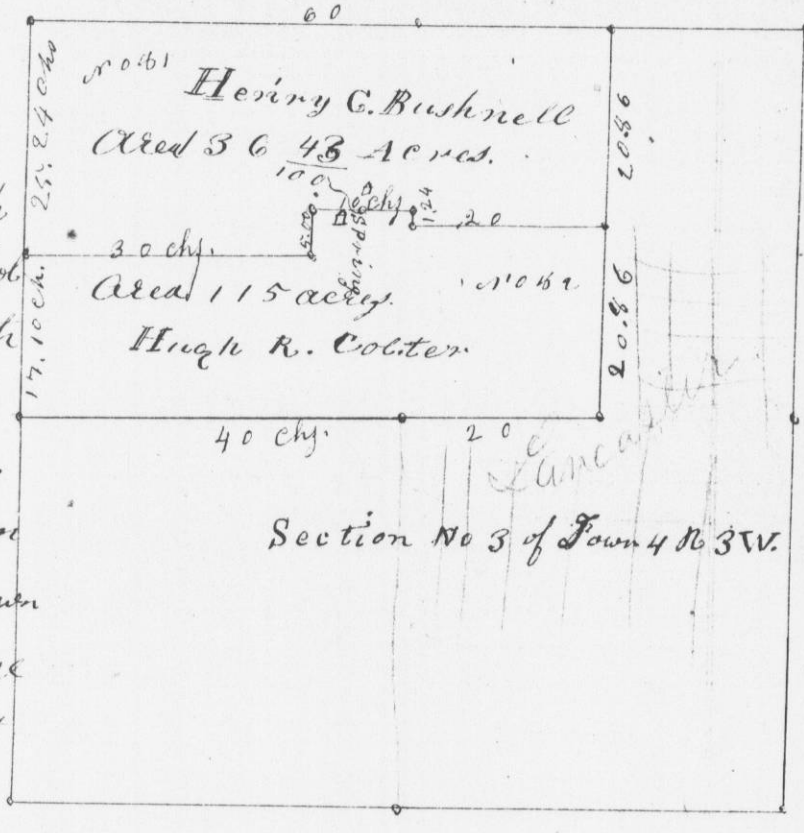 60
No 61
Henry C. Bushnell
Area 36 43/100 Acres.
25.24 chs
20.86
10 chs
1.24
20
5.00
Spring
30 chs.
Area 115 acres.
No 62
Hugh R. Colter
17.10 ch.
20.86
40 chs.
20
Lancaster
Section No 3 of Town 4 R 3 W.